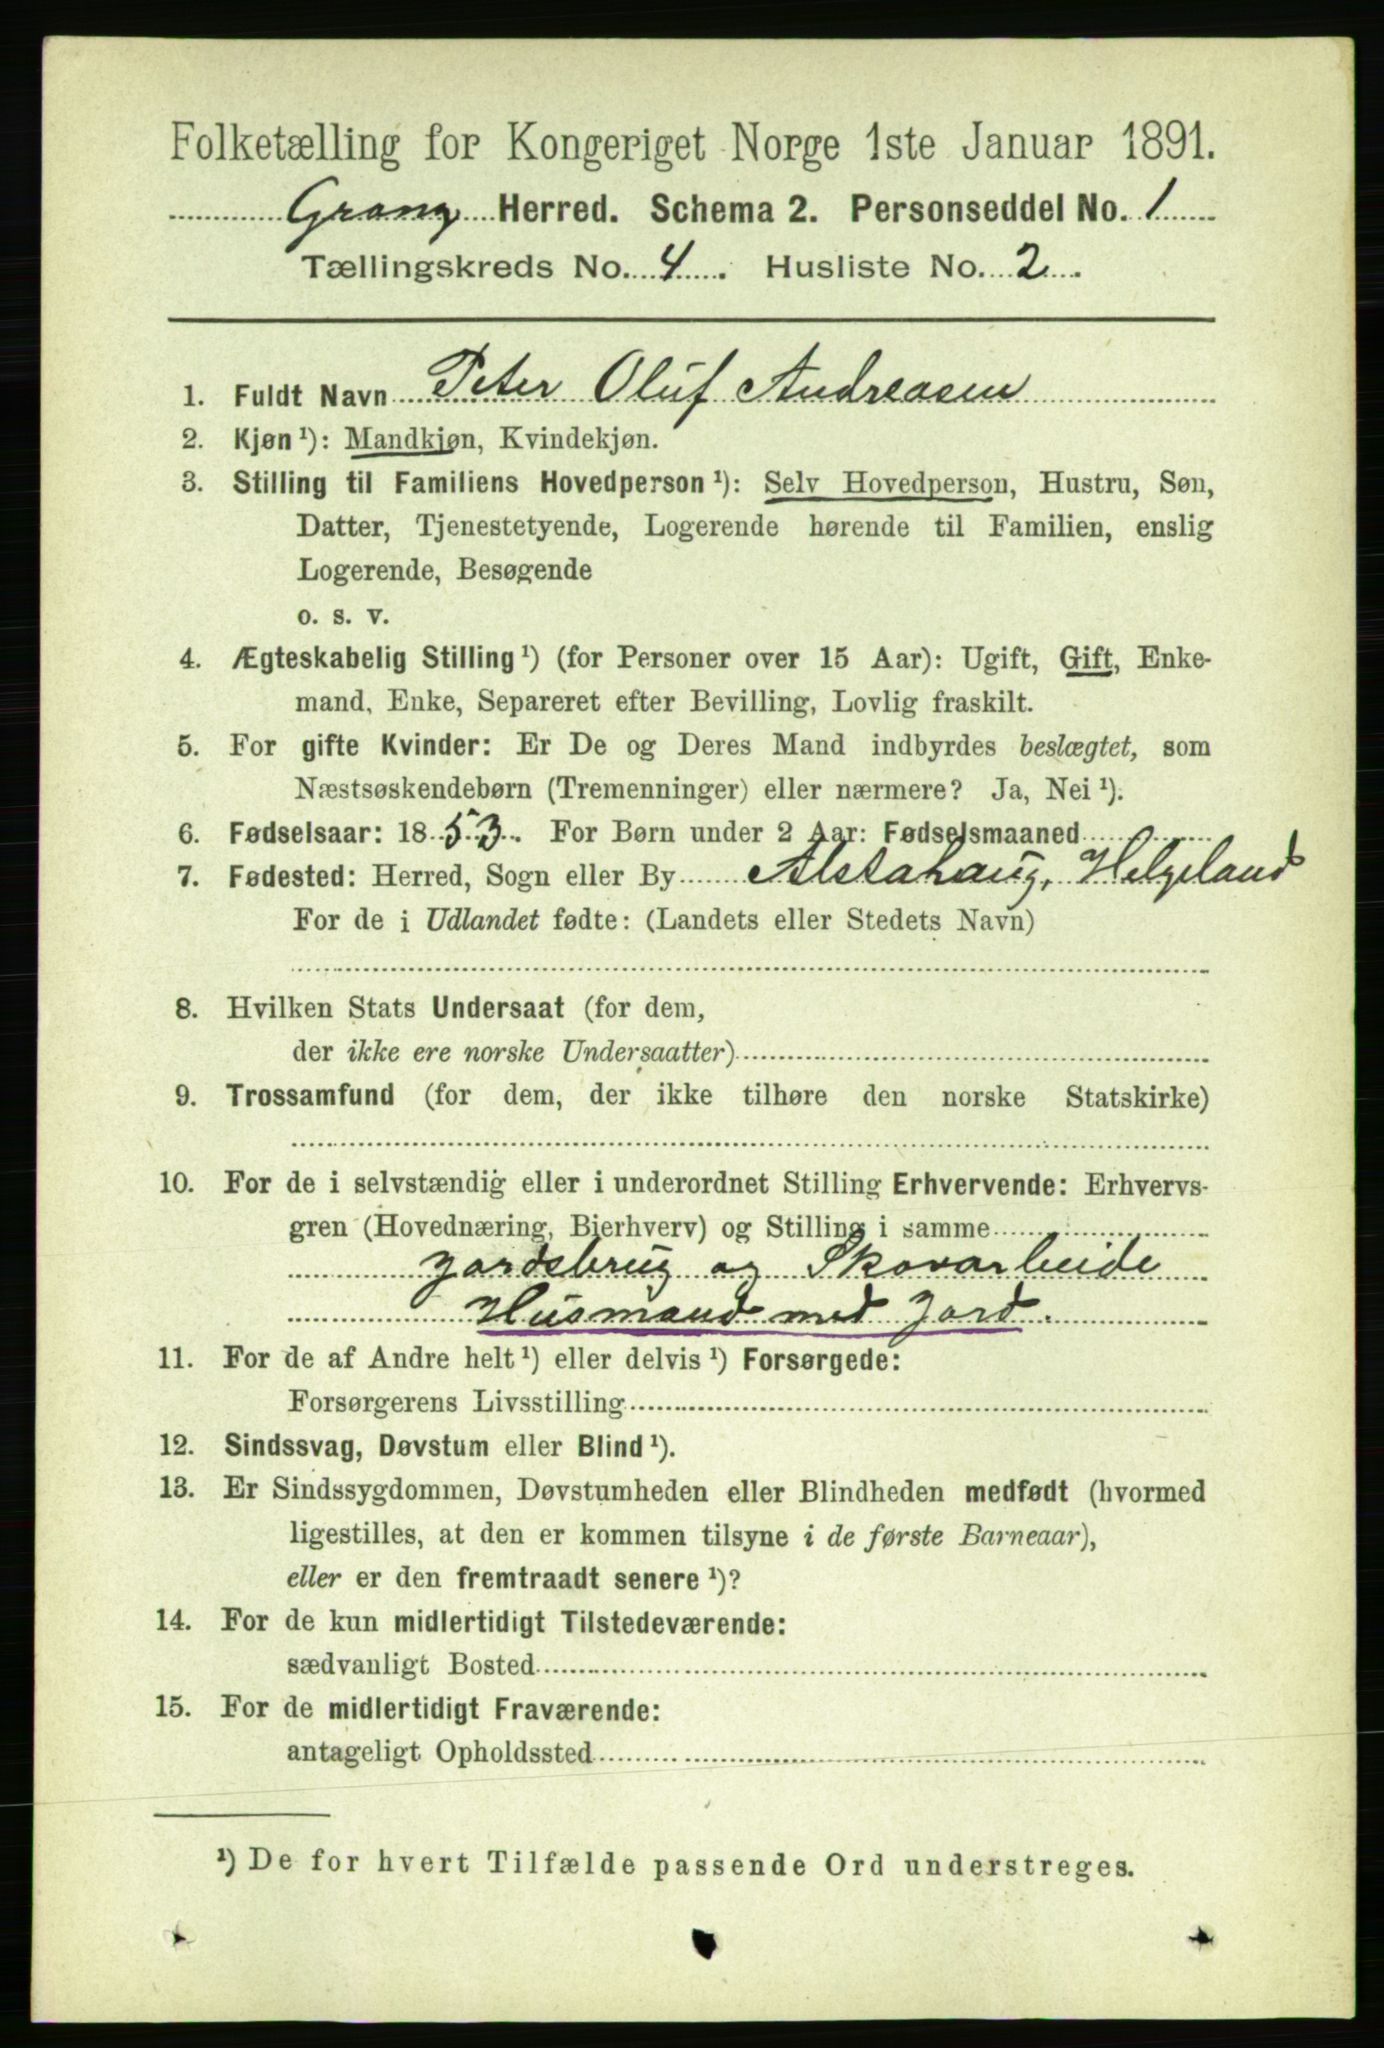 Folketælling for Kongeriget Norge 1ste Januar 1891.
Grong Herred. Schema 2. Personseddel No. 1
Tællingskreds No. 4. Husliste No. 2.
1. Fuldt Navn Peter Oluf Andreasen
2. Kjøn ¹): Mandkjøn, Kvindekjøn.
3. Stilling til Familiens Hovedperson ¹): Selv Hovedperson, Hustru, Søn,
Datter, Tjenestetyende, Logerende hørende til Familien, enslig
Logerende, Besøgende
o. s. v.
4. Ægteskabelig Stilling ¹) (for Personer over 15 Aar): Ugift, Gift, Enke-
mand, Enke, Separeret efter Bevilling, Lovlig fraskilt.
5. For gifte Kvinder: Er De og Deres Mand indbyrdes beslægtet, som
Næstsøskendebørn (Tremenninger) eller nærmere? Ja, Nei ¹).
6. Fødselsaar: 1853. For Børn under 2 Aar: Fødselsmaaned
7. Fødested: Herred, Sogn eller By Alstahaug, Helgeland
For de i Udlandet fødte: (Landets eller Stedets Navn)
8. Hvilken Stats Undersaat (for dem,
der ikke ere norske Undersaatter)
9. Trossamfund (for dem, der ikke tilhøre den norske Statskirke)
10. For de i selvstændig eller i underordnet Stilling Erhvervende: Erhvervs-
gren (Hovednæring, Bierhverv) og Stilling i samme
Jordsbrug og Skovarbeide
Husmand med Jord.
11. For de af Andre helt ¹) eller delvis ¹) Forsørgede:
Forsørgerens Livsstilling
12. Sindssvag, Døvstum eller Blind ¹).
13. Er Sindssygdommen, Døvstumheden eller Blindheden medfødt (hvormed
ligestilles, at den er kommen tilsyne i de første Barneaar),
eller er den fremtraadt senere ¹)?
14. For de kun midlertidigt Tilstedeværende:
sædvanligt Bosted
15. For de midlertidigt Fraværende:
antageligt Opholdssted
¹) De for hvert Tilfælde passende Ord understreges.